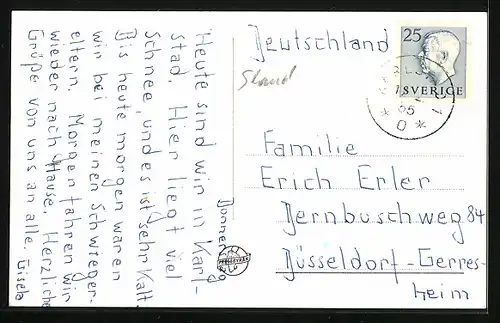 Heute sind wir in Karl
stad. Hier liegt viel
Schnee, und es ist sehr Kalt.
Bis heute morgen waren
wir bei meinen Schwieger-
eltern. Morgen fahren wir
wieder nach Hause. Herzliche
Grüße von uns an alle. Gisela
Deutschland
25
SVERIGE
Familie
Erich Erler
Dernbuschweg 84
Düsseldorf-Gerres-
heim